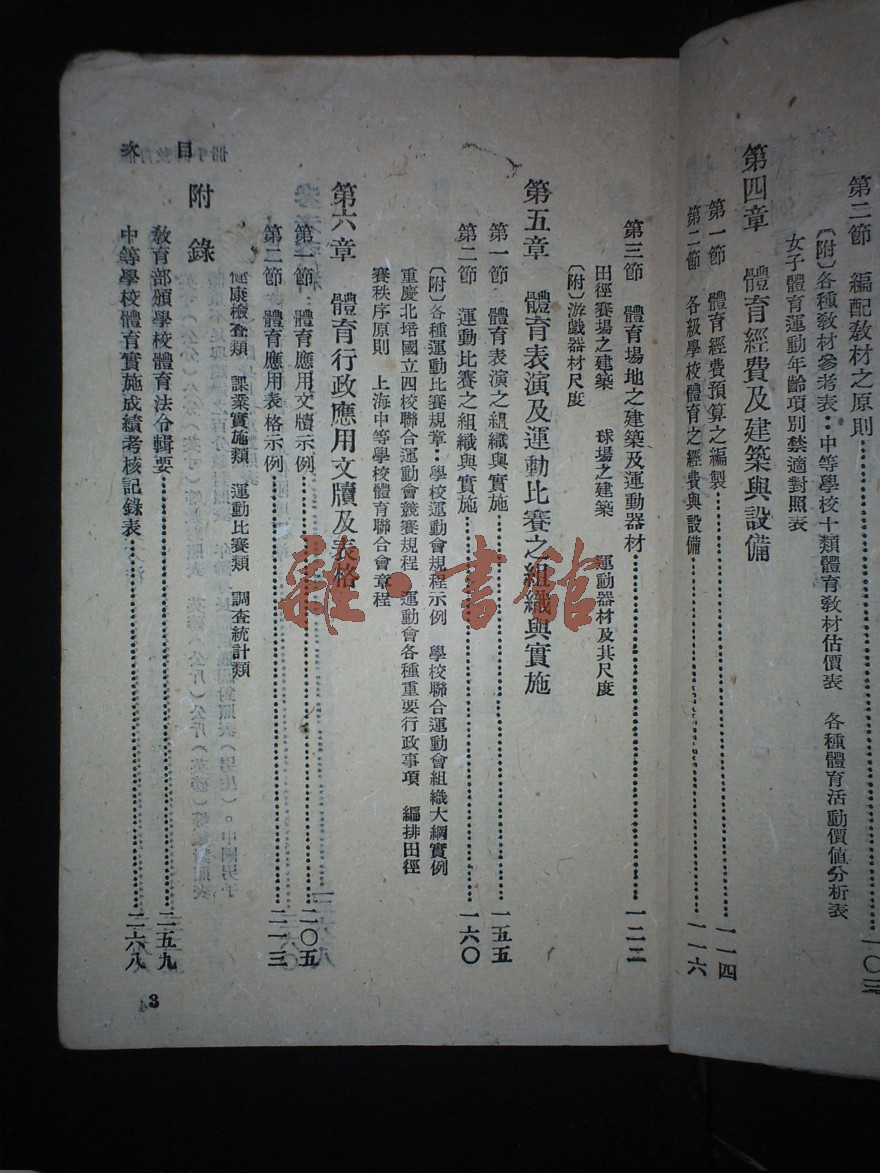 第二節　編配教材之原則……一〇三
〔附〕各種教材參考表：中等學校十類體育教材估價表　各種體育活動價值分析表
女子體育運動年齡項別禁適對照表
第四章　體育經費及建築與設備
第一節　體育經費預算之編製……一一四
第二節　各級學校體育之經費與設備……一一六
第三節　體育場地之建築及運動器材……一二二
田徑賽場之建築　球場之建築　運動器材及其尺度
〔附〕游戲器材尺度
第五章　體育表演及運動比賽之組織與實施
第一節　體育表演之組織與實施……一五五
第二節　運動比賽之組織與實施……一六〇
〔附〕各種運動比賽規章：學校運動會規程示例　學校聯合運動會組織大綱實例
重慶北碚國立四校聯合運動會競賽規程　運動會各種重要行政事項　編排田徑
賽秩序原則　上海中等學校體育聯合會章程
第六章　體育行政應用文牘及表格
第一節　體育應用文牘示例……二〇五
第二節　體育應用表格示例……二一三
健康檢查類　課業實施類　運動比賽類　調查統計類
附錄
教育部頒學校體育法令輯要……二五九
中等學校體育實施成績考核記錄表……二六八
目次
3
雜·書館